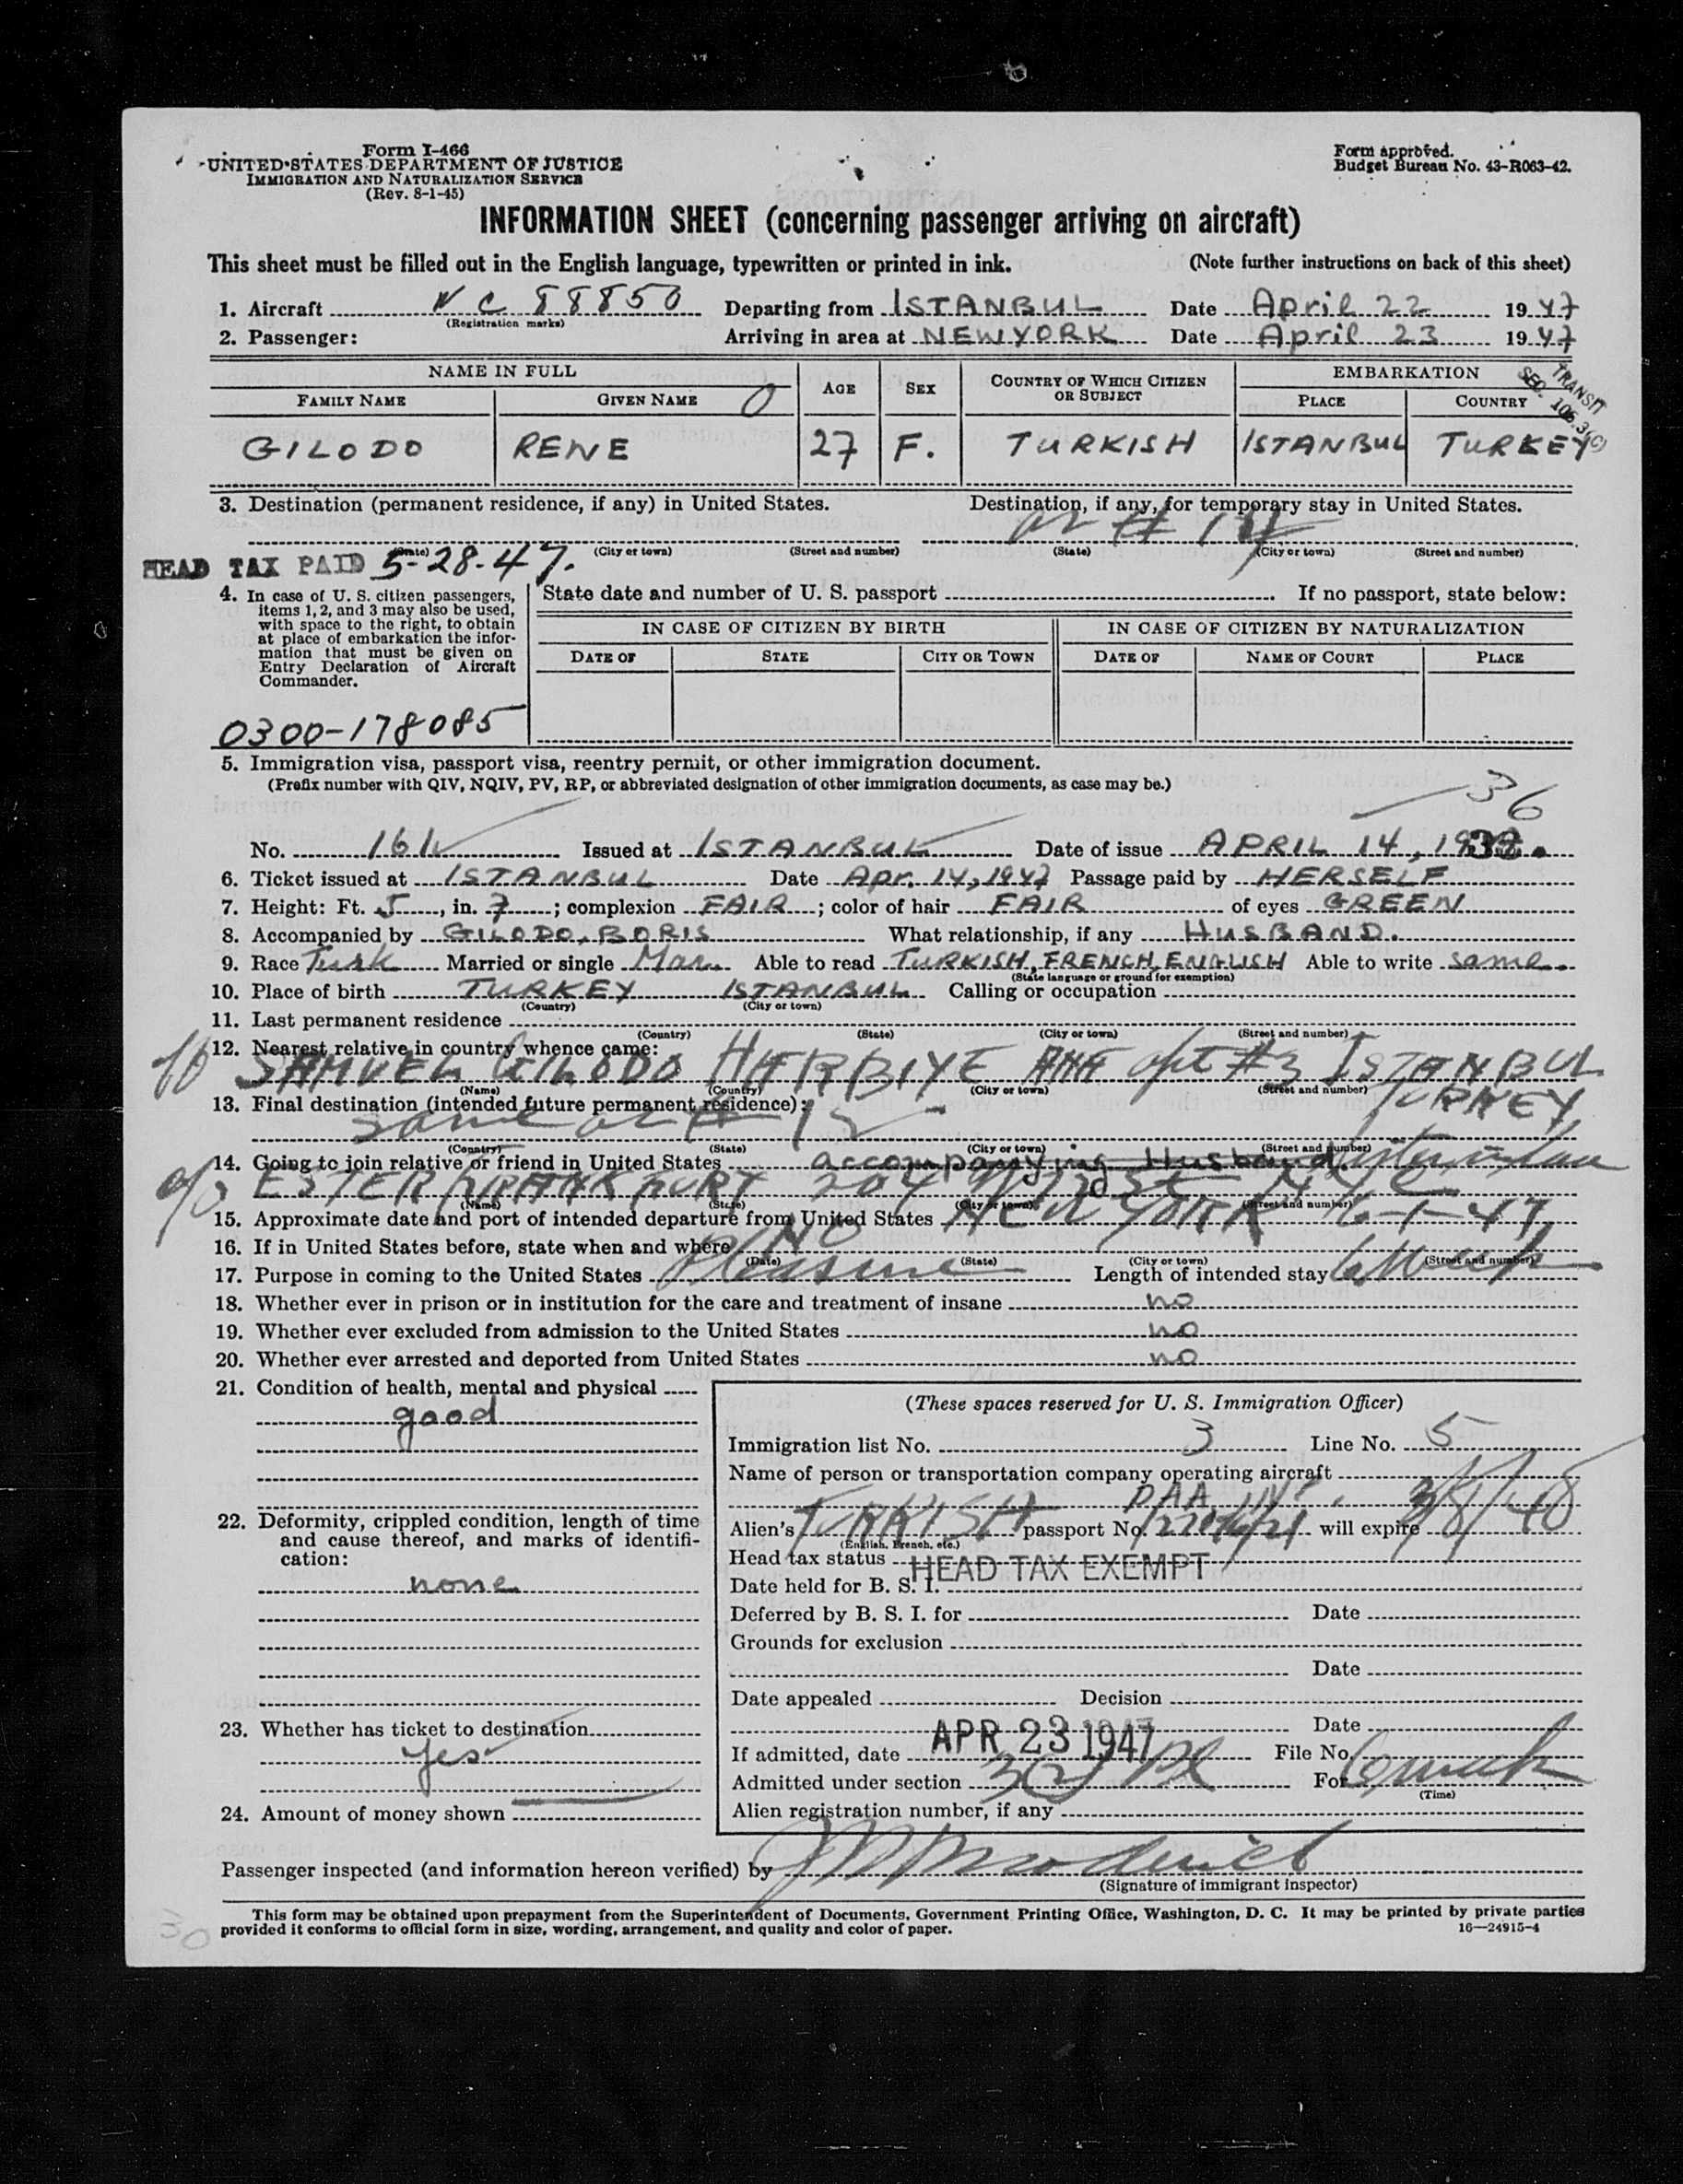 Form I-466
UNITED STATES DEPARTMENT OF JUSTICE
IMMIGRATION AND NATURALIZATION SERVICE
(Rev. 8-1-45)
Form approved.
Budget Bureau No. 43-R063-42.
INFORMATION SHEET (concerning passenger arriving on aircraft)
This sheet must be filled out in the English language, typewritten or printed in ink. (Note further instructions on back of this sheet)
1. Aircraft NC 88850 Departing from ISTANBUL Date April 22 1947
(Registration marks)
2. Passenger: Arriving in area at NEWYORK Date April 23 1947
NAME IN FULL AGE SEX COUNTRY OF WHICH CITIZEN OR SUBJECT EMBARKATION
FAMILY NAME GIVEN NAME PLACE COUNTRY
TRANSIT
SEC. 105.3(C)
GILODO RENE 27 F. TURKISH ISTANBUL TURKEY
3. Destination (permanent residence, if any) in United States. Destination, if any, for temporary stay in United States.
(State) (City or town) (Street and number) (State) (City or town) (Street and number)
HEAD TAX PAID 5-28-47.
4. In case of U. S. citizen passengers, items 1, 2, and 3 may also be used, with space to the right, to obtain at place of embarkation the information that must be given on Entry Declaration of Aircraft Commander.
State date and number of U. S. passport If no passport, state below:
IN CASE OF CITIZEN BY BIRTH IN CASE OF CITIZEN BY NATURALIZATION
DATE OF STATE CITY OR TOWN DATE OF NAME OF COURT PLACE
0300-178085
5. Immigration visa, passport visa, reentry permit, or other immigration document.
(Prefix number with QIV, NQIV, PV, RP, or abbreviated designation of other immigration documents, as case may be.)
36
No. 161 Issued at ISTANBUL Date of issue APRIL 14, 19
6. Ticket issued at ISTANBUL Date Apr. 14, 1947 Passage paid by HERSELF
7. Height: Ft. 5, in. 7; complexion FAIR; color of hair FAIR of eyes GREEN
8. Accompanied by GILODO, BORIS What relationship, if any HUSBAND.
9. Race Turk Married or single Mar. Able to read TURKISH, FRENCH, ENGLISH Able to write same
(State language or ground for exemption)
10. Place of birth TURKEY ISTANBUL Calling or occupation
(Country) (City or town)
11. Last permanent residence
(Country) (State) (City or town) (Street and number)
12. Nearest relative in country whence came:
SAMUEL GILODO HARBIYE apt #3 ISTANBUL
TURKEY
(Name) (Country) (City or town) (Street and number)
13. Final destination (intended future permanent residence):
same as # 12
(Country) (State) (City or town) (Street and number)
14. Going to join relative or friend in United States accompanying Husband sister in law
c/o ESTER FRANKFURT 204 W 72d St NYC
(Name) (State) (City or town) (Street and number)
15. Approximate date and port of intended departure from United States NEW YORK 6-1-47
16. If in United States before, state when and where NO
(Date) (State) (City or town) (Street and number)
17. Purpose in coming to the United States Pleasure Length of intended stay 6 Weeks
18. Whether ever in prison or in institution for the care and treatment of insane no
19. Whether ever excluded from admission to the United States no
20. Whether ever arrested and deported from United States no
21. Condition of health, mental and physical
good
22. Deformity, crippled condition, length of time and cause thereof, and marks of identification:
none
23. Whether has ticket to destination
yes
24. Amount of money shown
(These spaces reserved for U. S. Immigration Officer)
Immigration list No. 3 Line No. 5
Name of person or transportation company operating aircraft
PAA
Alien's TURKISH passport No. will expire 3/8/48
(English, French, etc.)
Head tax status HEAD TAX EXEMPT
Date held for B. S. I.
Deferred by B. S. I. for Date
Grounds for exclusion
Date
Date appealed Decision
Date
If admitted, date APR 23 1947 File No.
Admitted under section 3(2) Pl For 6 weeks
(Time)
Alien registration number, if any
Passenger inspected (and information hereon verified) by
(Signature of immigrant inspector)
This form may be obtained upon prepayment from the Superintendent of Documents, Government Printing Office, Washington, D. C. It may be printed by private parties
provided it conforms to official form in size, wording, arrangement, and quality and color of paper. 16—24915-4
30